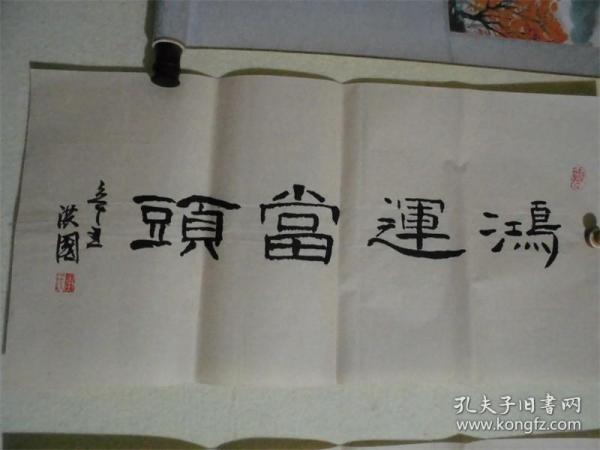 鴻運當頭
洪國
孔夫子旧书网
www.kongfz.com